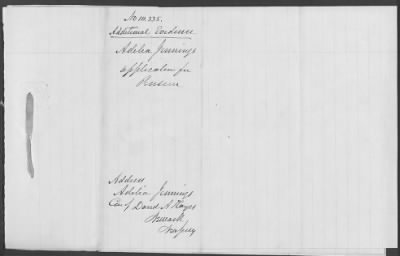 No 111.335.
Additional Evidence
Adelia Jennings
application for
Pension
Address
Adelia Jennings
Care of David A Hayes
Newark
New Jersey